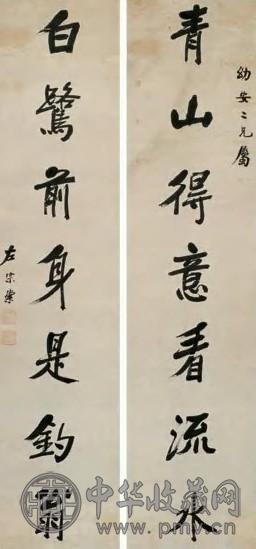 幼安二兄屬
青山得意看流水
白鷺前身是釣翁
左宗棠
中华收藏网
www.pmv.cn